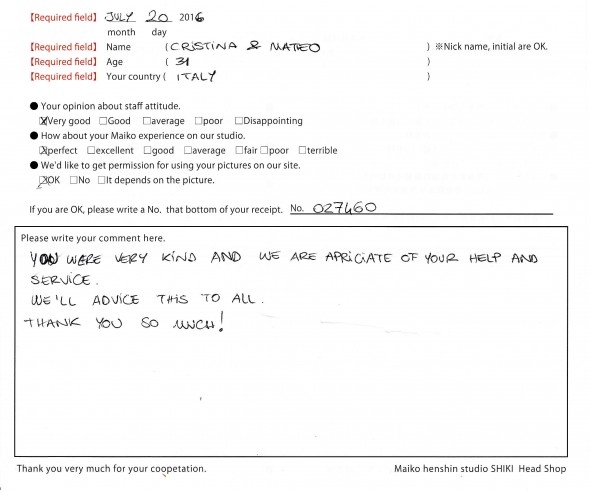 【Required field】 JULY 20 2016
month day
【Required field】 Name ( CRISTINA & MATTEO ) ※Nick name, initial are OK.
【Required field】 Age ( 31 )
【Required field】 Your country ( ITALY )
● Your opinion about staff attitude.
☒Very good □Good □average □poor □Disappointing
● How about your Maiko experience on our studio.
☒perfect □excellent □good □average □fair □poor □terrible
● We'd like to get permission for using your pictures on our site.
☒OK □No □It depends on the picture.
If you are OK, please write a No. that bottom of your receipt. No. 027460
Please write your comment here.
YOU WERE VERY KIND AND WE ARE APRICIATE OF YOUR HELP AND
SERVICE.
WE'LL ADVICE THIS TO ALL.
THANK YOU SO MUCH!
Thank you very much for your coopetation. Maiko henshin studio SHIKI Head Shop